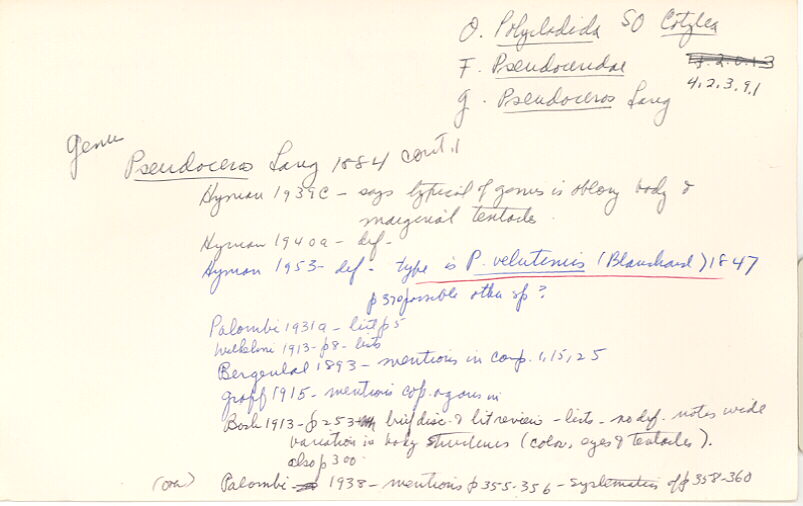 O. Polycladida SO Cotylea
F. Pseudoceridae
4.2.3.9.1
g. Pseudoceros Lang
Genus
Pseudoceros Lang 1884 cont. 1
Hyman 1939c - says typical of genus is oblong body &
marginal tentacles.
Hyman 1940a - def.
Hyman 1953 - def - type is P. velutinus (Blanchard) 1847
possible other sp?
Palombi 1931a - list p5
Wilhelmi 1913 - p8 - lists
Bergendal 1893 - mentions in comp. 1, 15, 25
Graff 1915 - mentions cop. organs in
Bock 1913 - p253 brief disc. & lit review - lists - no def. notes wide
variation in body (color, eyes & tentacles).
also p300.
Palombi 1938 - mentions p355-356 - Systematics of p358-360